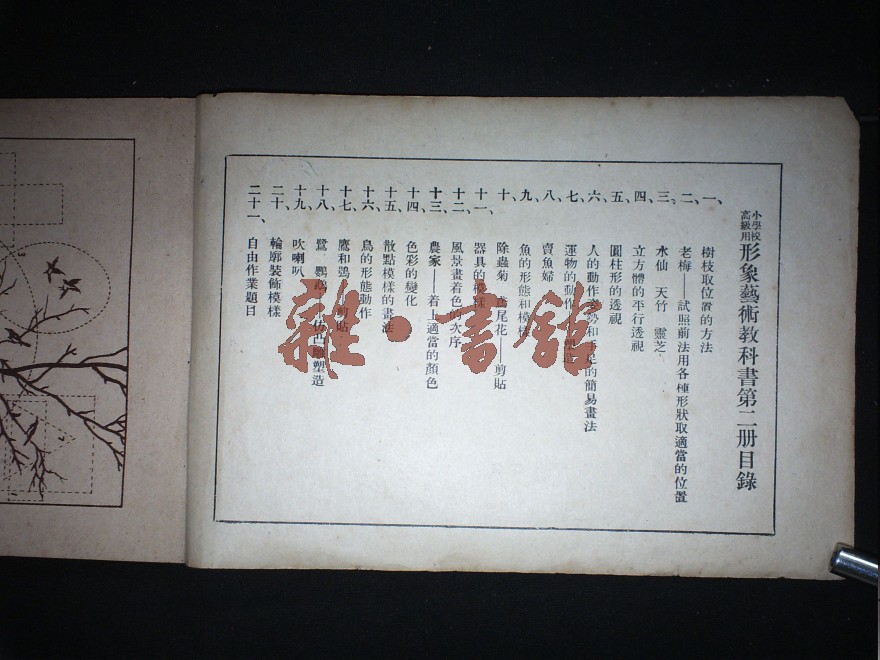 小學校
高級用
形象藝術教科書第二册目錄
一、樹枝取位置的方法
二、老梅——試照前法用各種形狀取適當的位置
三、水仙 天竹 靈芝
四、立方體的平行透視
五、圓柱形的透視
六、人的動作姿勢和手足的簡易畫法
七、運物的動作
八、賣魚婦
九、魚的形態和模樣
十、除蟲菊 鳶尾花——剪貼
十一、器具的模樣
十二、風景畫着色的次序
十三、農家——着上適當的顏色
十四、色彩的變化
十五、散點模樣的畫法
十六、鳥的形態動作
十七、鷹和鴞 剪貼
十八、鷺 鸚鵡 凸雕塑造
十九、吹喇叭
二十、輪廓裝飾模樣
二十一、自由作業題目
雜·書館